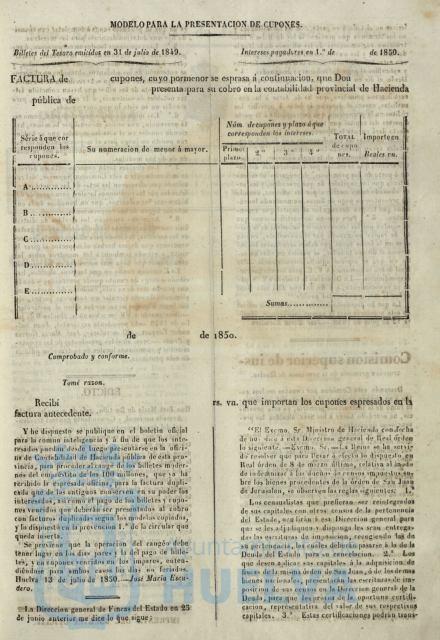 MODELO PARA LA PRESENTACION DE CUPONES.
Billetes del Tesoro emitidos en 31 de julio de 1849.
Intereses pagaderos en 1.º de de 1850.
FACTURA de cupones, cuyo pormenor se espresa á continuacion, que Don
presenta para su cobro en la contabilidad provincial de Hacienda
pública de
Série á que cor
responden los
cupones.
Su numeracion de menor á mayor.
Núm. de cupones y plazo á que
corresponden los intereses.
Primer
plazo.
2.º
3.º
4.º
TOTAL
de cupo
nes.
Importe en
Reales vn.
A
B
C
D
E
Sumas
de de 1850.
Comprobado y conforme.
Tomé razon.
Recibí rs. vn. que importan los cupones espresados en la
factura antecedente.
Y he dispuesto se publique en el boletin oficial
para la comun inteligencia y á fin de que los inte-
resados puedan desde luego presentarse en la ofici-
na de Contabilidad de Hacienda pública de esta pro-
vincia, para proceder al cange de los billetes moder-
nos del empréstito de los 100 millones, que ya há
recibido la espresada oficina, para la factura dupli-
cada que de los antiguos conserven en su poder los
interesados, asi como el pago de los billetes y cupo-
nes vencidos que deberán ser presentados al cobro
con facturas duplicadas segun los modelos copiados,
y lo dispuesto en la prevencion 1.ª de la circular que
queda inserta.
Se previene que la operacion del cange debe
tener lugar en los dias pares y la del pago de bille-
tes, y cupones vencidos en los impares, enten-
diéndose para ambos casos los dias no feriados.
Huelva 13 de julio de 1850.—José Maria Escu-
dero.
La Direccion general de Fincas del Estado en 25
de junio anterior me dice lo que sigue:
"El Excmo. Sr. Ministro de Hacienda con fecha
de hoy dice á esta Direccion general de Real órden
lo siguiente.—Excmo. Sr.—La Reina se ha servi-
do resolver que para llevar á efecto lo dispuesto en
Real órden de 8 de marzo último, relativa al modo
de indemnizar á los dueños de censos impuestos so-
bre los bienes procedentes de la órden de San Juan
de Jerusalen, se observen las reglas siguientes: 1.ª
Los censualistas que prefieran ser reintegrados
de sus capitales con otros censos de la pertenencia
del Estado, acudirán á esa Direccion general, para
que se les adjudiquen y disponga les sean entrega-
das las escrituras de imposicion, recogiendo las de
su pertenencia, las cuales deberán pasarse á la de la
Deuda del Estado para su cancelacion. 2.ª Los
que deseen aplicar sus capitales á la adquisicion de
fincas de la misma órden de San Juan, ó de los demas
bienes nacionales, presentarán las escrituras de im-
posicion de sus censos en la Direccion general de la
Deuda, para que les provea de la oportuna certifi-
cacion, representativa del valor de sus respectivos
capitales. 3.ª Estas certificaciones podrán trans-